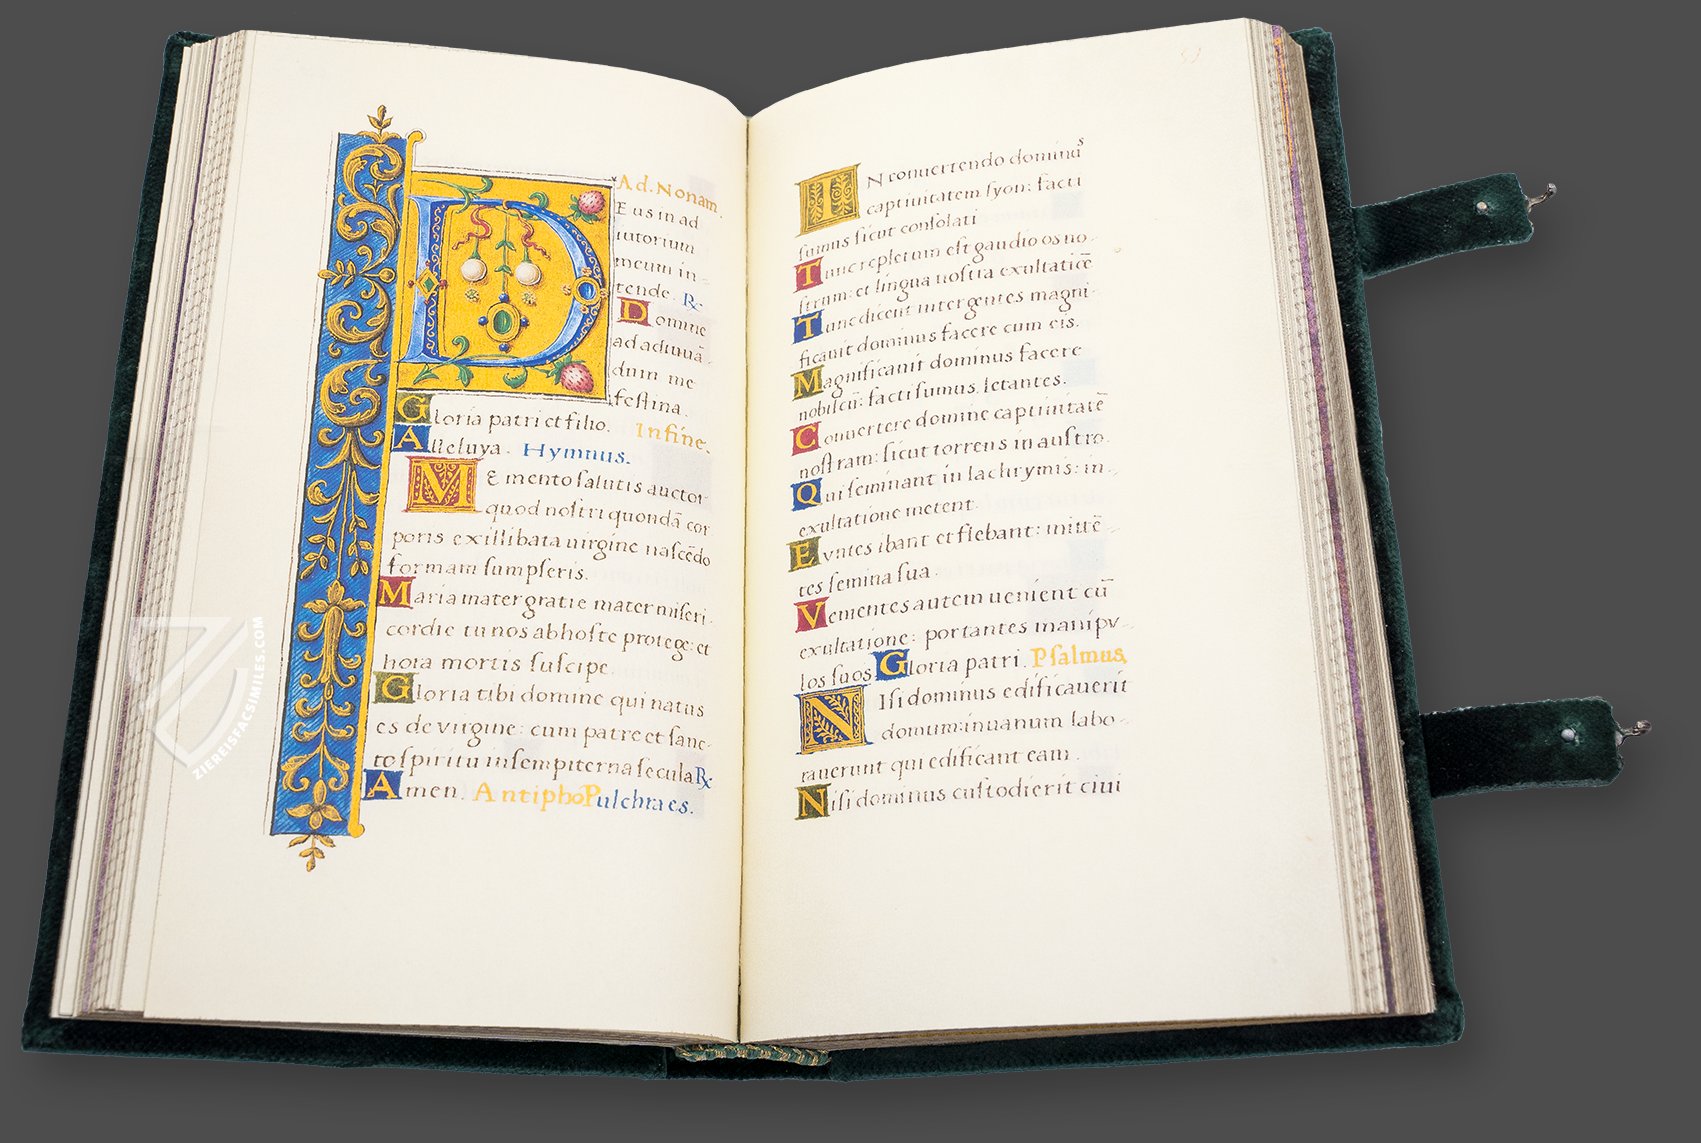 Ad. Nonam.
DEus in ad
iutorium
meum in-
tende. R͛
Domine
ad adiuuā-
dum me
festina.
Gloria patri et filio. In fine.
Alleluya. Hymnus.
MEmento salutis auctor
quod nostri quondā cor
poris ex illibata uirgine nascēdo
formam sumpseris.
Maria mater gratie mater miseri-
cordie tu nos ab hoste protege: et
hora mortis suscipe.
Gloria tibi domine qui natus
es de virgine: cum patre et sanc-
to spiritu in sempiterna secula R͛
Amen. Antipho Pulchra es.
IN conuertendo dominus
captiuitatem syon: facti
sumus sicut consolati
Tunc repletum est gaudio os no-
strum: et lingua nostra exultatiōe
Tunc dicent inter gentes magni-
ficauit dominus facere cum eis.
Magnificauit dominus facere
nobiscū: facti sumus letantes.
Conuertere domine captiuitatē
nostram: sicut torrens in austro.
Qui seminant in lachrymis: in-
exultatione metent.
Euntes ibant et flebant: mittē-
tes semina sua.
Venientes autem uenient cū
exultatione: portantes manipu-
los suos Gloria patri. Psalmus.
NIsi dominus edificauerit
domum: in uanum labo-
rauerunt qui edificant eam.
Nisi dominus custodierit ciui
ZIEREISFACSIMILES.COM